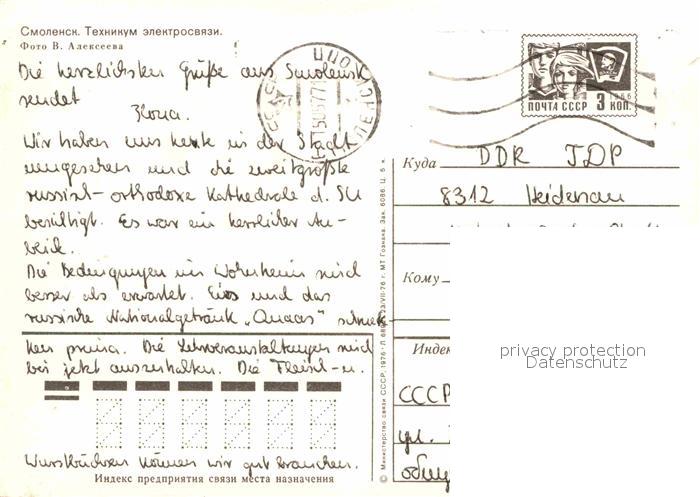 Смоленск. Техникум электросвязи.
Фото В. Алексеева
Die herzlichsten Grüße aus Smolensk
sendet
Ilona.
Wir haben uns heute in der Stadt
umgesehen und die zweitgrößte
russisch-orthodoxe Kathedrale d. SU
besichtigt. Es war ein herrlicher An-
blick.
Die Bedingungen im Wohnheim sind
besser als erwartet. Eis und das
russische Nationalgetränk „Quass" schmek-
ken prima. Die Lehrveranstaltungen sind
bis jetzt auszuhalten. Die Fleisch- u.
Wurstbüchsen können wir gut brauchen.
Индекс предприятия связи места назначения
Министерство связи СССР, 1976
МТ Гознака. Зак. 6086. Ц. 5 к.
ПОЧТА СССР 3 КОП.
1966
Куда DDR TDP
8312 Heidenau
Кому
Индек
СССР
ул.
общ
privacy protection
Datenschutz